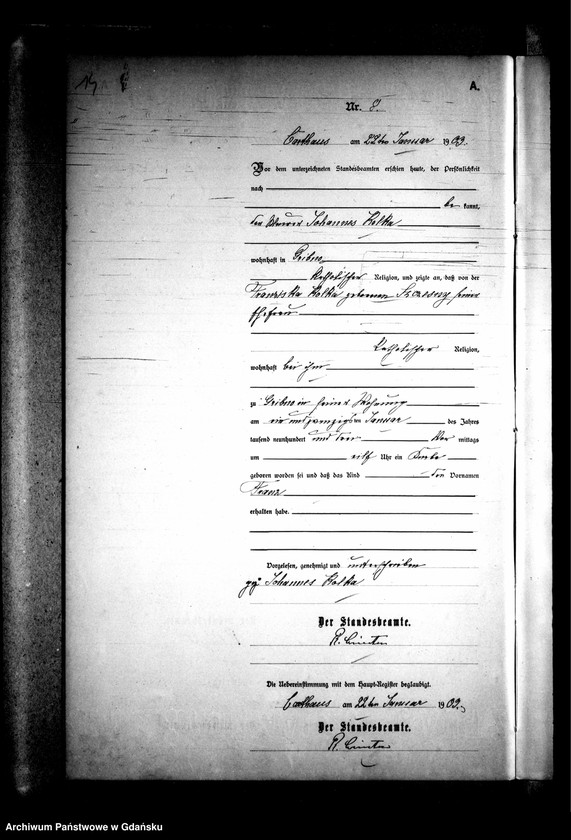 A.
Nr. 8.
Carthaus am 22ten Januar 1903.
Vor dem unterzeichneten Standesbeamten erschien heute, der Persönlichkeit
nach
be kannt,
der Johannes
wohnhaft in
katholischer Religion, und zeigte an, daß von der
Franziska geborenen seiner
Ehefrau
katholischer Religion,
wohnhaft bei ihm
zu in seiner Wohnung
am ein und zwanzigsten Januar des Jahres
tausend neunhundert und drei Vor mittags
um elf Uhr ein Knabe
geboren worden sei und daß das Kind den Vornamen
Franz
erhalten habe.
Vorgelesen, genehmigt und unterschrieben
gez Johannes
Der Standesbeamte.
R.
Die Uebereinstimmung mit dem Haupt-Register beglaubigt.
Carthaus am 22ten Januar 1903.
Der Standesbeamte.
R.
Archiwum Państwowe w Gdańsku